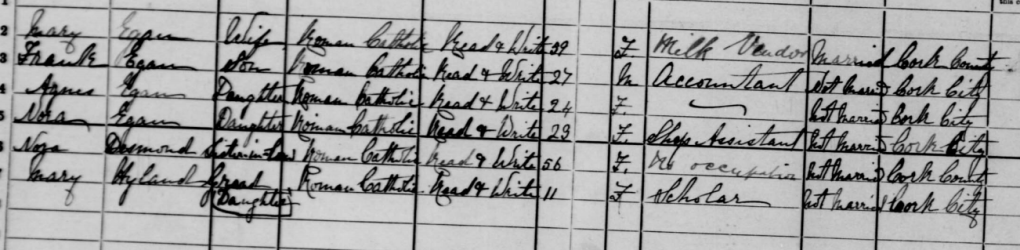 2 Mary Egan Wife Roman Catholic Read & Write 59 F Milk Vendor Married Cork County
3 Frank Egan Son Roman Catholic Read & Write 27 M Accountant Not Married Cork City
4 Agnes Egan Daughter Roman Catholic Read & Write 24 F. Not Married Cork City
5 Nora Egan Daughter Roman Catholic Read & Write 23 F. Shop Assistant Not Married Cork City
6 Nora Desmond Sister in Law Roman Catholic Read & Write 56 F. No occupation Not Married Cork County
7 Mary Hyland Grand Daughter Roman Catholic Read & Write 11 F Scholar Not Married Cork City